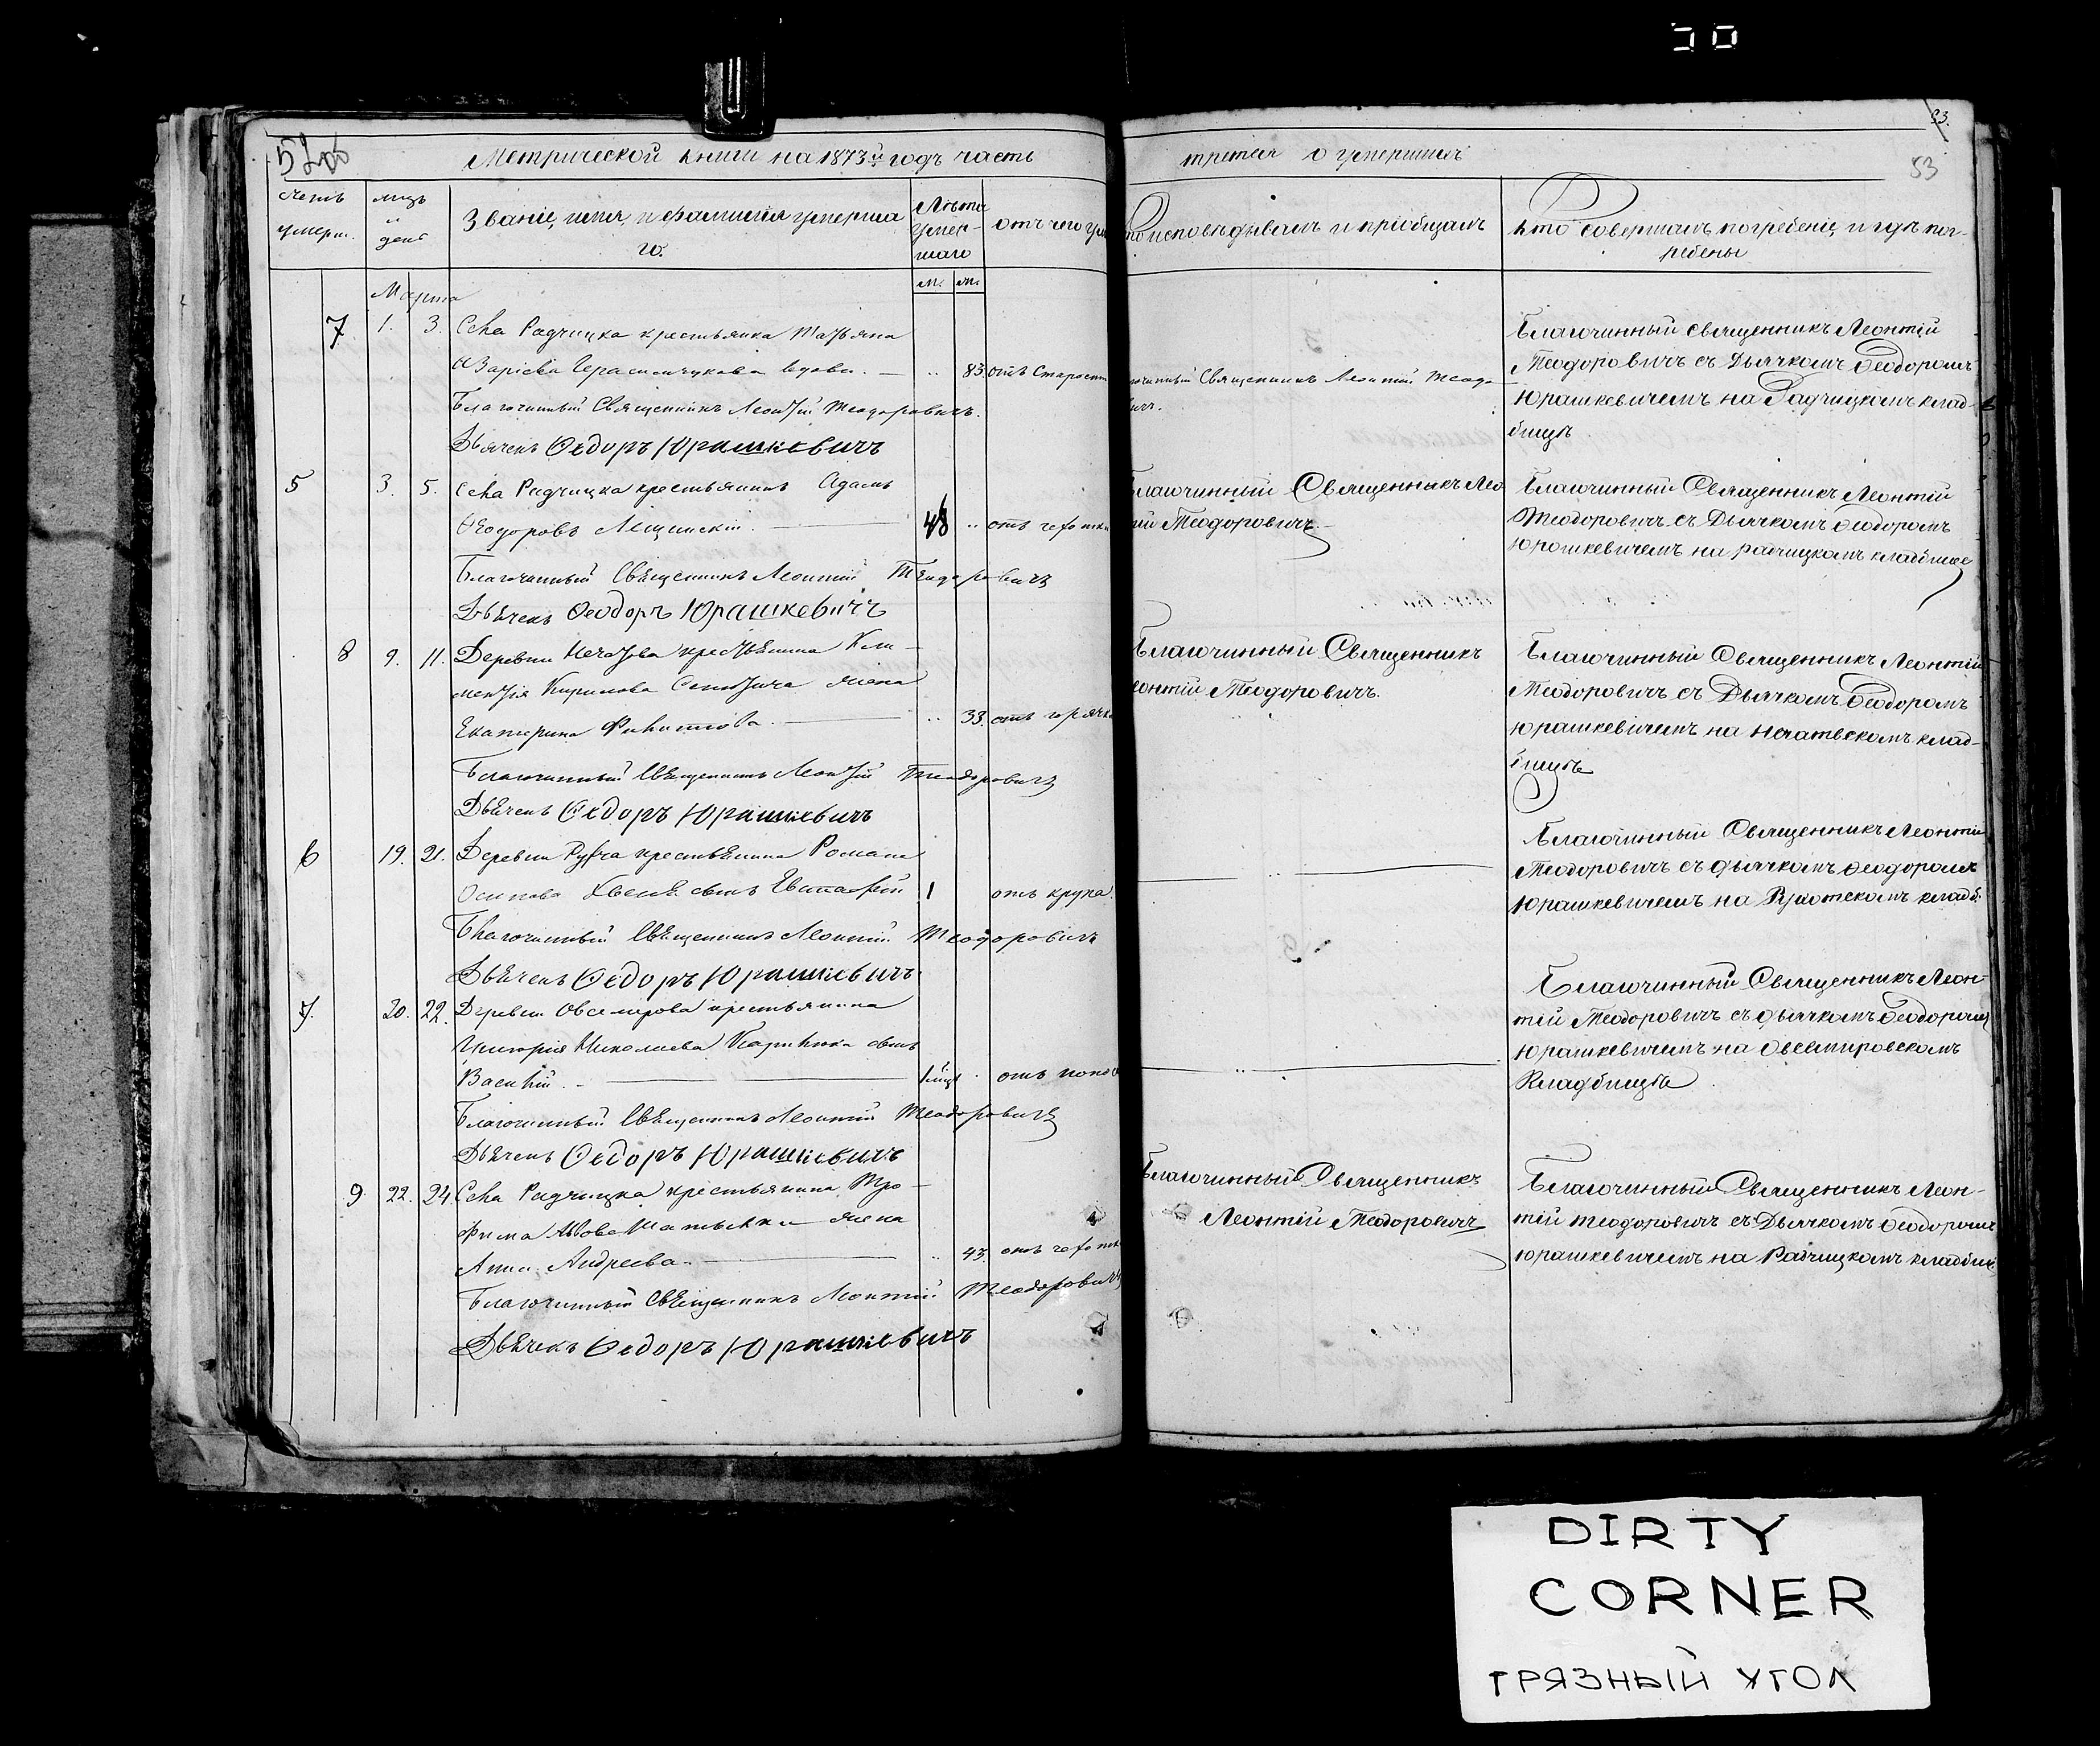 53.
53
Метрической книги на 1873й годъ часть третья о умершихъ
Счетъ умерш.
мцъ и день
Званіе, имя, и фамилія умерша
го.
Лѣта умер-
шаго
отъ чего
исповѣдывалъ и пріобщалъ
Кто совершалъ погребеніе и гдѣ пог-
ребены
М. Ж.
Марта
7 1. 3. Села Радчицка крестьянка Татьяна
Азаріева вдова. — 83. отъ Старости
Благочинный Священникъ Леонтій Теодоровичъ.
Дьячекъ Ѳедоръ Юрашкевичъ
Священникъ Леонтій Теодо-
Благочинный священникъ Леонтій
Теодоровичъ съ Дьячкомъ Ѳеодоромъ
Юрашкевичемъ на Радчицкомъ клад-
бищѣ
5 3. 5. Села Радчицка крестьянинъ Адамъ
Ѳеодоровъ Лещинскій. — 48 " отъ чахотки
Благочинный Священникъ Леонтій Теодоровичъ
Дьячекъ Ѳеодоръ Юрашкевичъ
Благочинный Священникъ Лео
тій Теодоровичъ. —
Благочинный Священникъ Леонтій
Теодоровичъ съ Дьячкомъ Ѳеодоромъ
Юрашкевичемъ на радчицкомъ кладбище
8 9. 11. Деревни Нечатова крестьянина Кли-
ментія Кирилова жена
Екатерина Филипова. — " 33. отъ горячки
Благочинный Священникъ Леонтій Теодоровичъ
Дьячекъ Ѳедоръ Юрашкевичъ
Благочинный Священникъ
Леонтій Теодоровичъ.
Благочинный Священникъ Леонтій
Теодоровичъ съ Дьячкомъ Ѳеодоромъ
Юрашкевичемъ на Нечатовскомъ клад-
бищѣ
6 19. 21. Деревни крестьянина Романа
Осипова сынъ 1 отъ крупа.
Благочинный Священникъ Леонтій Теодоровичъ
Дьячекъ Ѳедоръ Юрашкевичъ
Благочинный Священникъ Леонтій
Теодоровичъ съ дьячкомъ Ѳеодоромъ
Юрашкевичемъ на кладб.
7. 20. 22. Деревни Овсемирова крестьянина
Григорія Николаева сынъ
Василій. — отъ
Благочинный Священникъ Леонтій Теодоровичъ
Дьячекъ Ѳедоръ Юрашкевичъ
Благочинный Священникъ Леон-
тій Теодоровичъ съ дьячкомъ Ѳеодоромъ
Юрашкевичемъ на Овсемировскомъ
Кладбищѣ
9 22. 24. Села Радчицка крестьянина Тро-
фима жена
Анна Андреева. — " 43. отъ чахотки
Благочинный Священникъ Леонтій Теодоровичъ
Дьячекъ Ѳедоръ Юрашкевичъ
Благочинный Священникъ
Леонтій Теодоровичъ
Благочинный Священникъ Леон-
тій Теодоровичъ съ Дьячкомъ Ѳеодоромъ
Юрашкевичемъ на Радчицкомъ кладбищ
DIRTY
CORNER
ГРЯЗНЫЙ УГОЛ